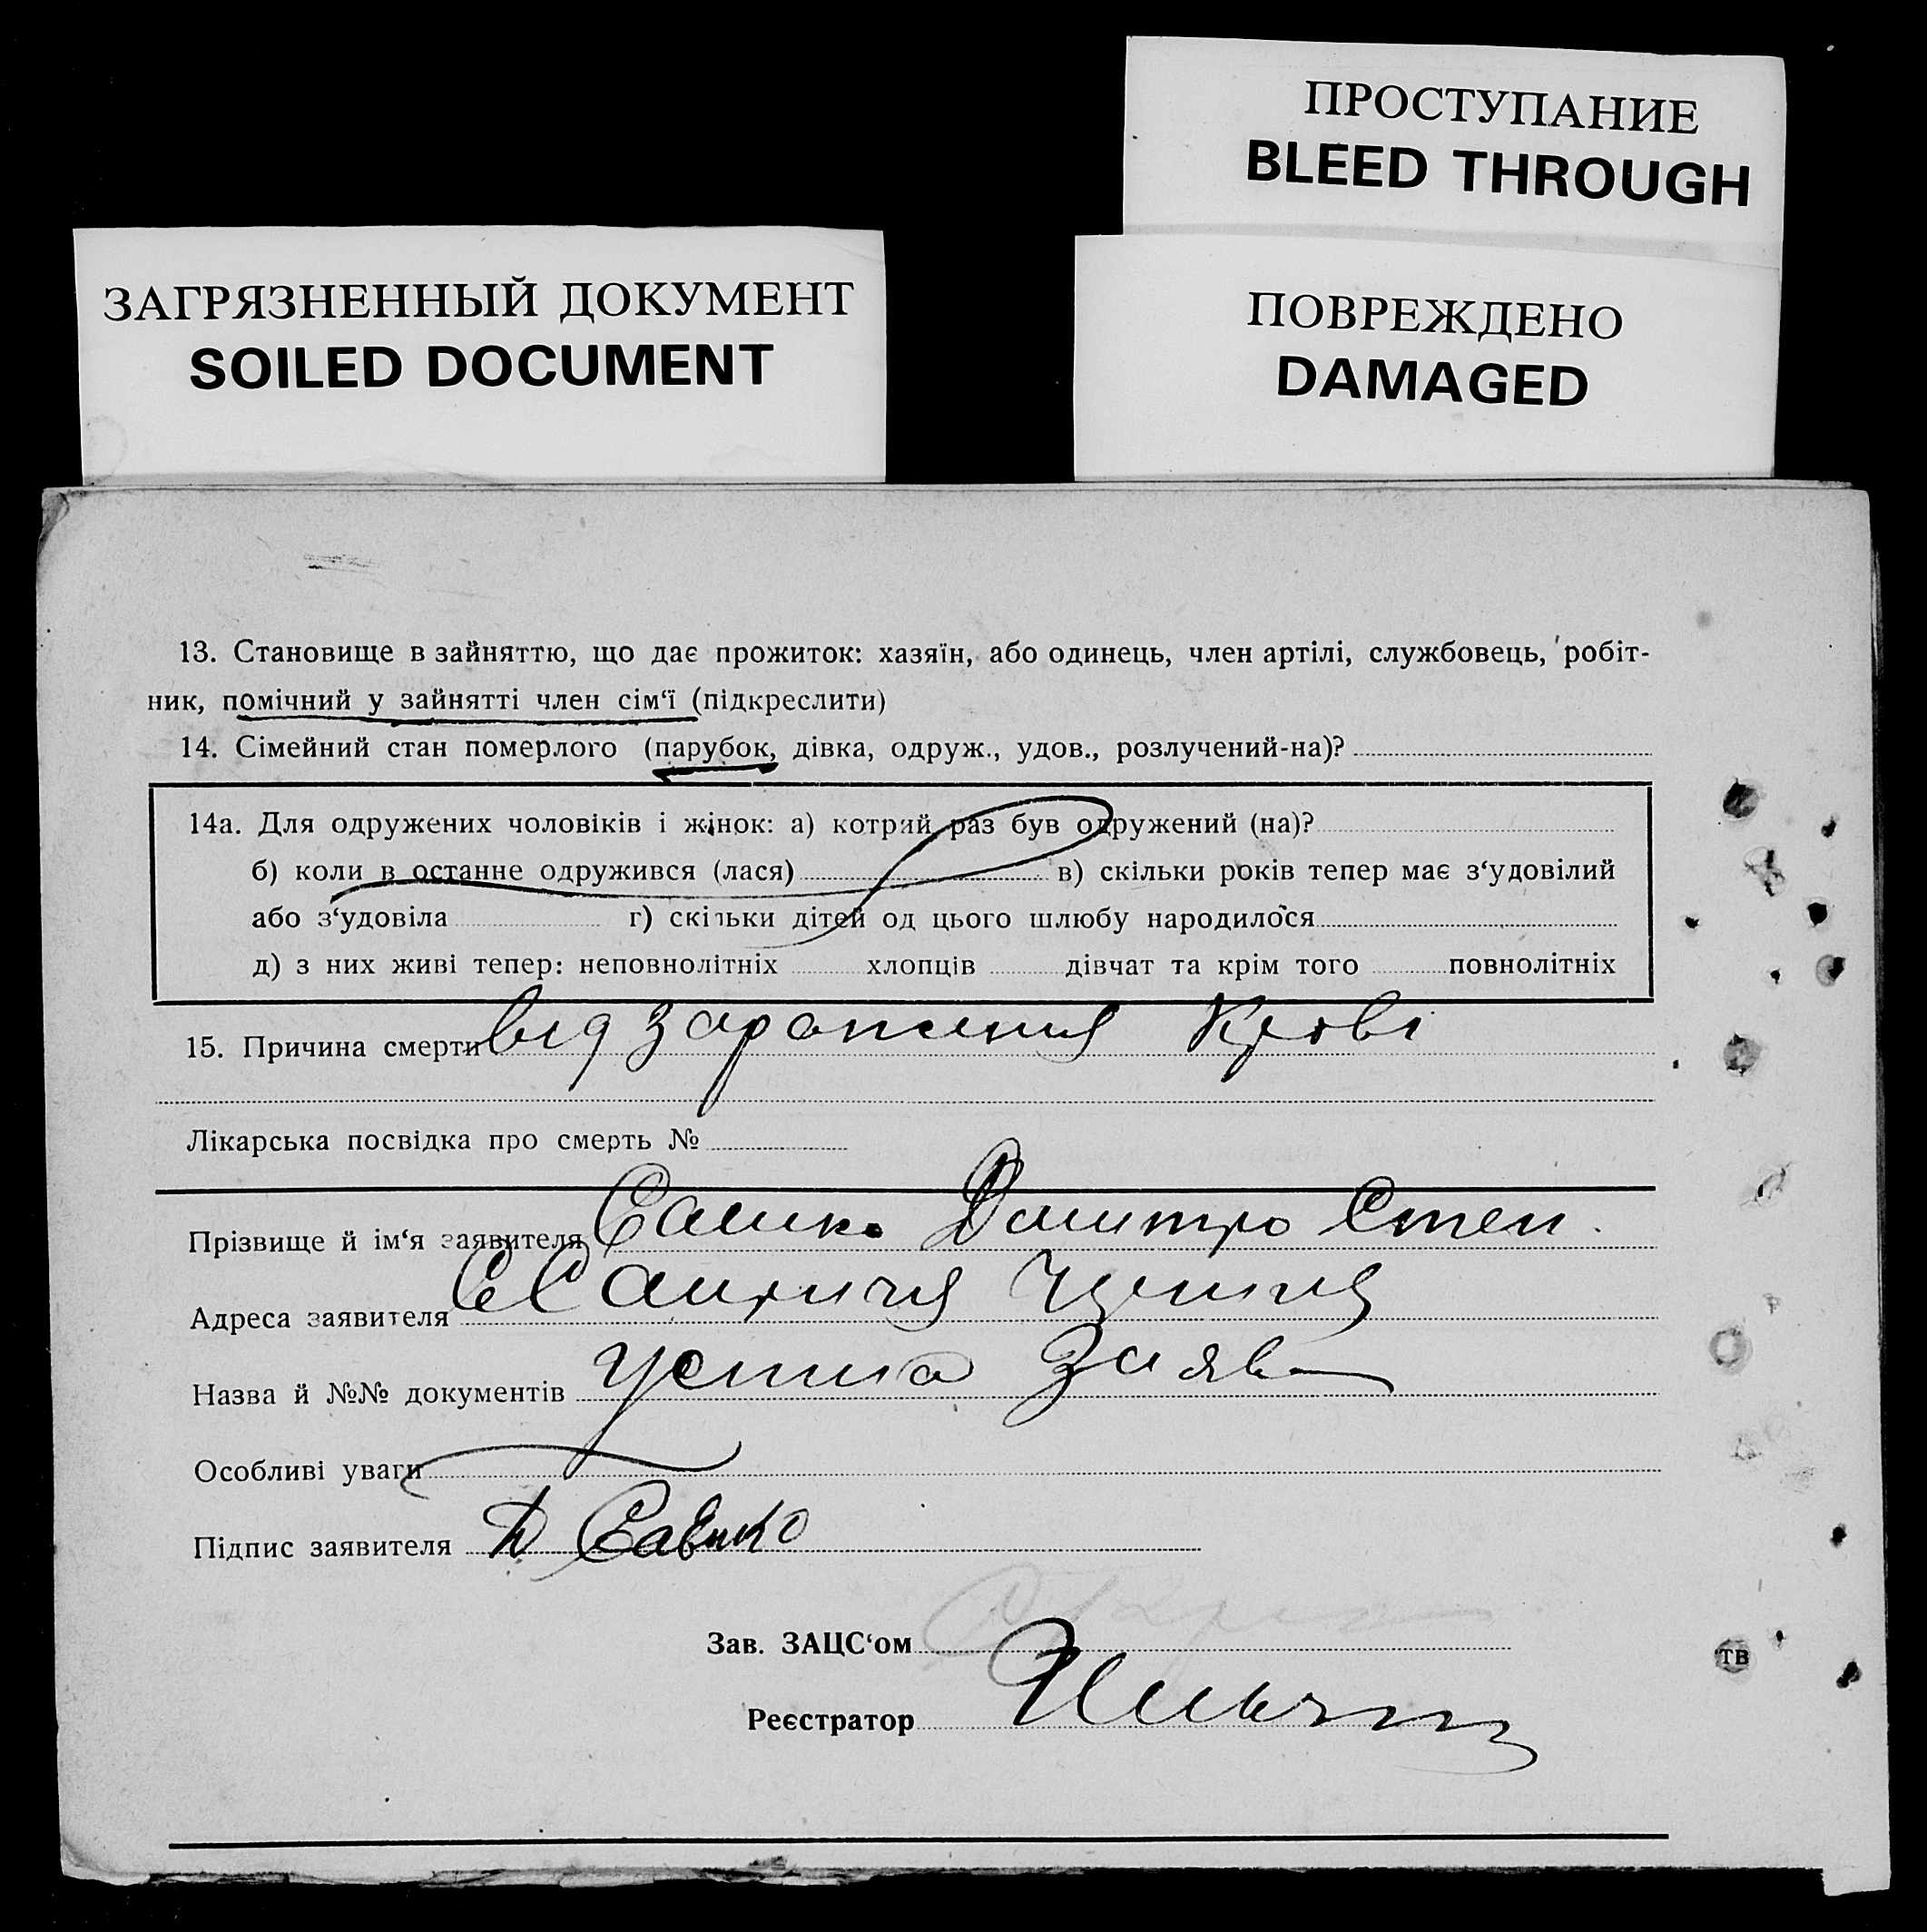 ПРОСТУПАНИЕ
BLEED THROUGH
ЗАГРЯЗНЕННЫЙ ДОКУМЕНТ
SOILED DOCUMENT
ПОВРЕЖДЕНО
DAMAGED
13. Становище в зайняттю, що дає прожиток: хазяїн, або одинець, член артілі, службовець, робіт-
ник, помічний у зайнятті член сім‘ї (підкреслити)
14. Сімейний стан померлого (парубок, дівка, одруж., удов., розлучений-на)?
14а. Для одружених чоловіків і жінок: а) котрий раз був одружений (на)?
б) коли в останне одружився (лася) в) скільки років тепер має з‘удовілий
або з‘удовіла г) скільки дітей од цього шлюбу народилося
д) з них живі тепер: неповнолітніх хлопців дівчат та крім того повнолітніх
15. Причина смерти від зараження Крові
Лікарська посвідка про смерть №
Прізвище й ім‘я заявителя Дмитро Степ.
Адреса заявителя
Назва й №№ документів Усна Заява
Особливі уваги
Підпис заявителя Д Савко
Зав. ЗАЦС‘ом
Реєстратор
тв